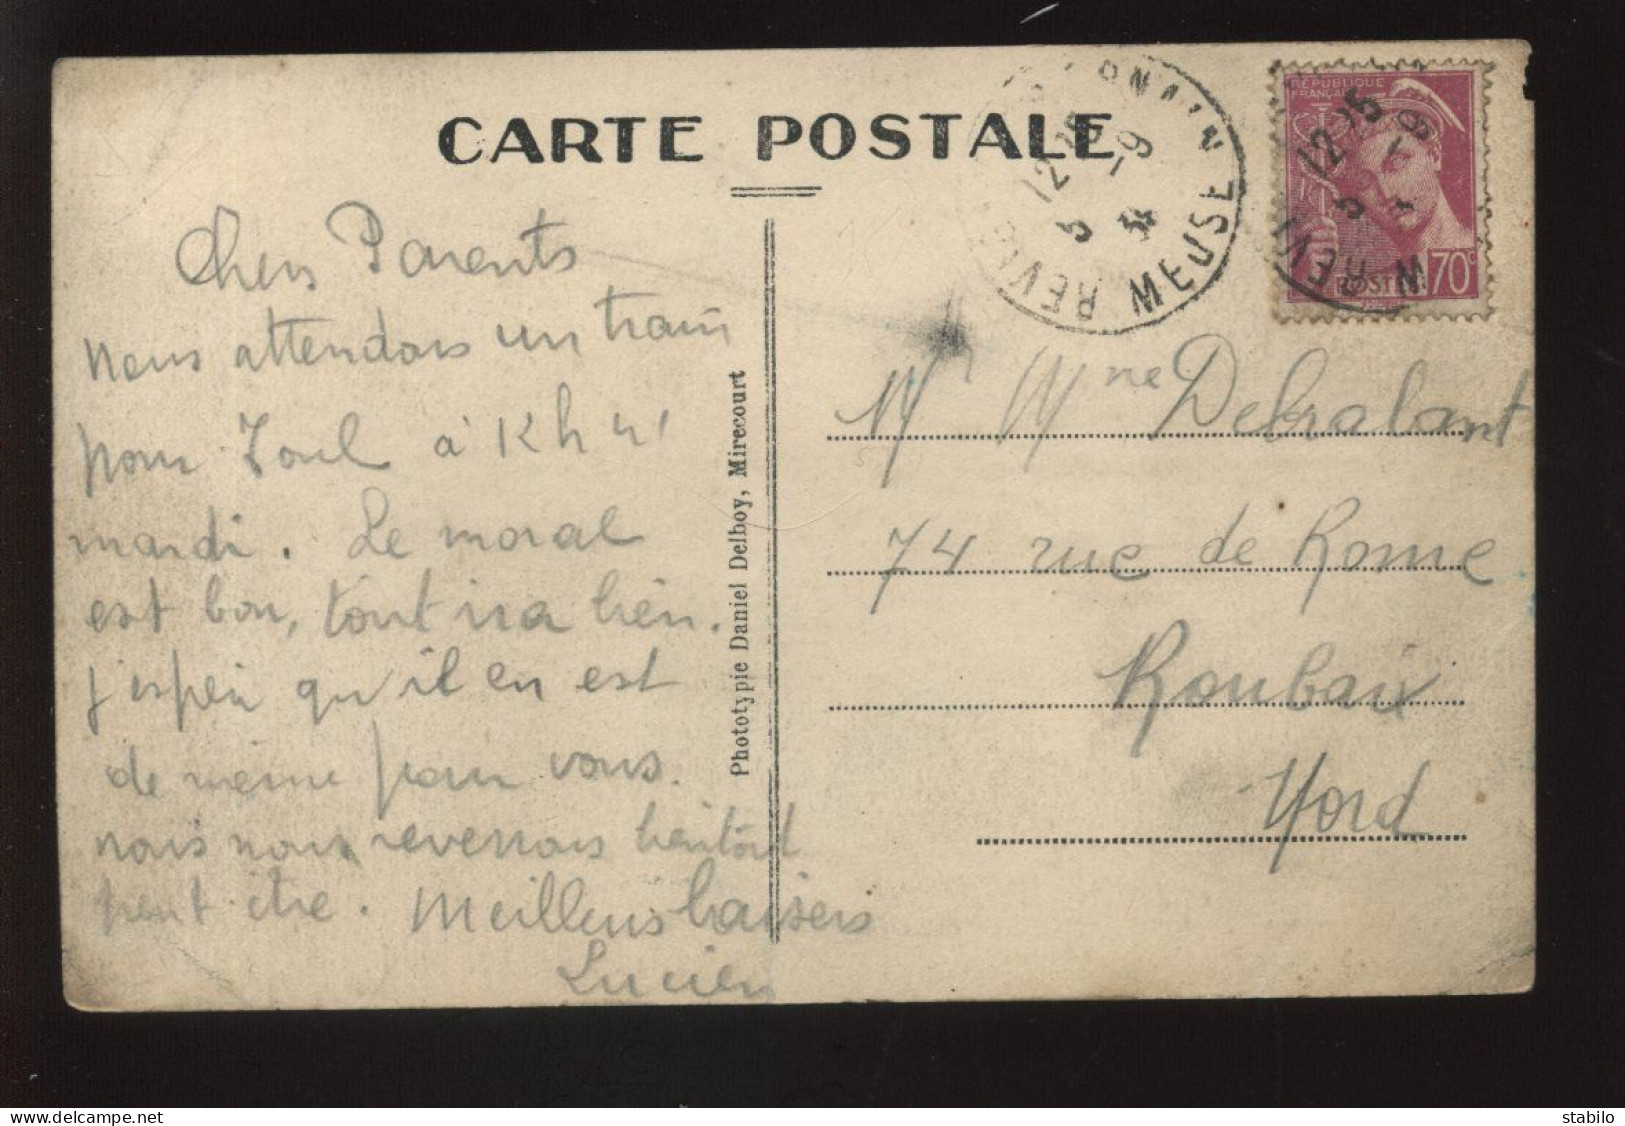 CARTE POSTALE
Chers Parents
nous attendons un train
pour Toul à 12 h 41
mardi. Le moral
est bon, tout ira bien.
j'espère qu'il en est
de même pour vous.
nous revenons bientôt
peut être. Meilleurs baisers
Lucien
Phototypie Daniel Delboy, Mirecourt
MEUSE
12 25
3 - 9
REVI
RÉPUBLIQUE
FRANÇAISE
POSTES 70c
12 25
3 - 9
REVI
Mr Mme
74 rue de Rome
Roubaix
Nord
stabilo